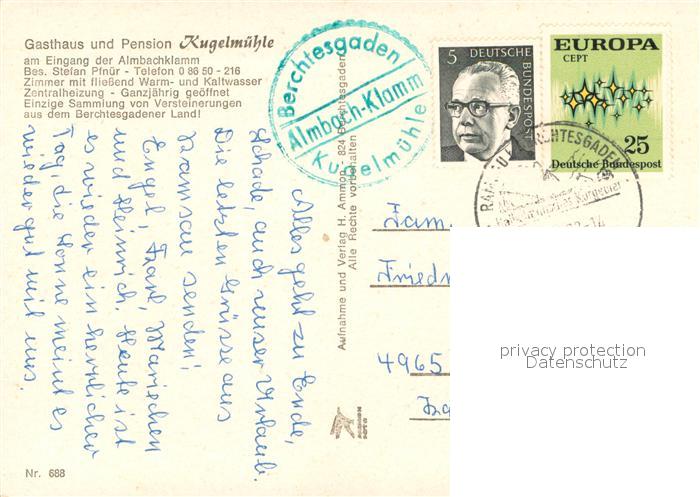 Gasthaus und Pension Kugelmühle
am Eingang der Almbachklamm
Bes. Stefan Pfnür - Telefon 0 86 50 - 216
Zimmer mit fließend Warm- und Kaltwasser
Zentralheizung - Ganzjährig geöffnet
Einzige Sammlung von Versteinerungen
aus dem Berchtesgadener Land!
Berchtesgaden
Almbach-Klamm
Kugelmühle
5
DEUTSCHE
BUNDESPOST
EUROPA
CEPT
25
Deutsche Bundespost
Alles geht zu Ende,
Schade, auch unser Urlaub.
Die letzten Grüsse aus
Ramsau senden
Engel, Karl, Mariechen
und Heinrich. Heute ist
es wieder ein herrlicher
Tag, die Sonne meint es
wieder gut mit uns.
Aufnahme und Verlag H. Ammon, 824 Berchtesgaden
Alle Rechte vorbehalten
Fam.
Friedr
4965
privacy protection
Datenschutz
Nr. 688